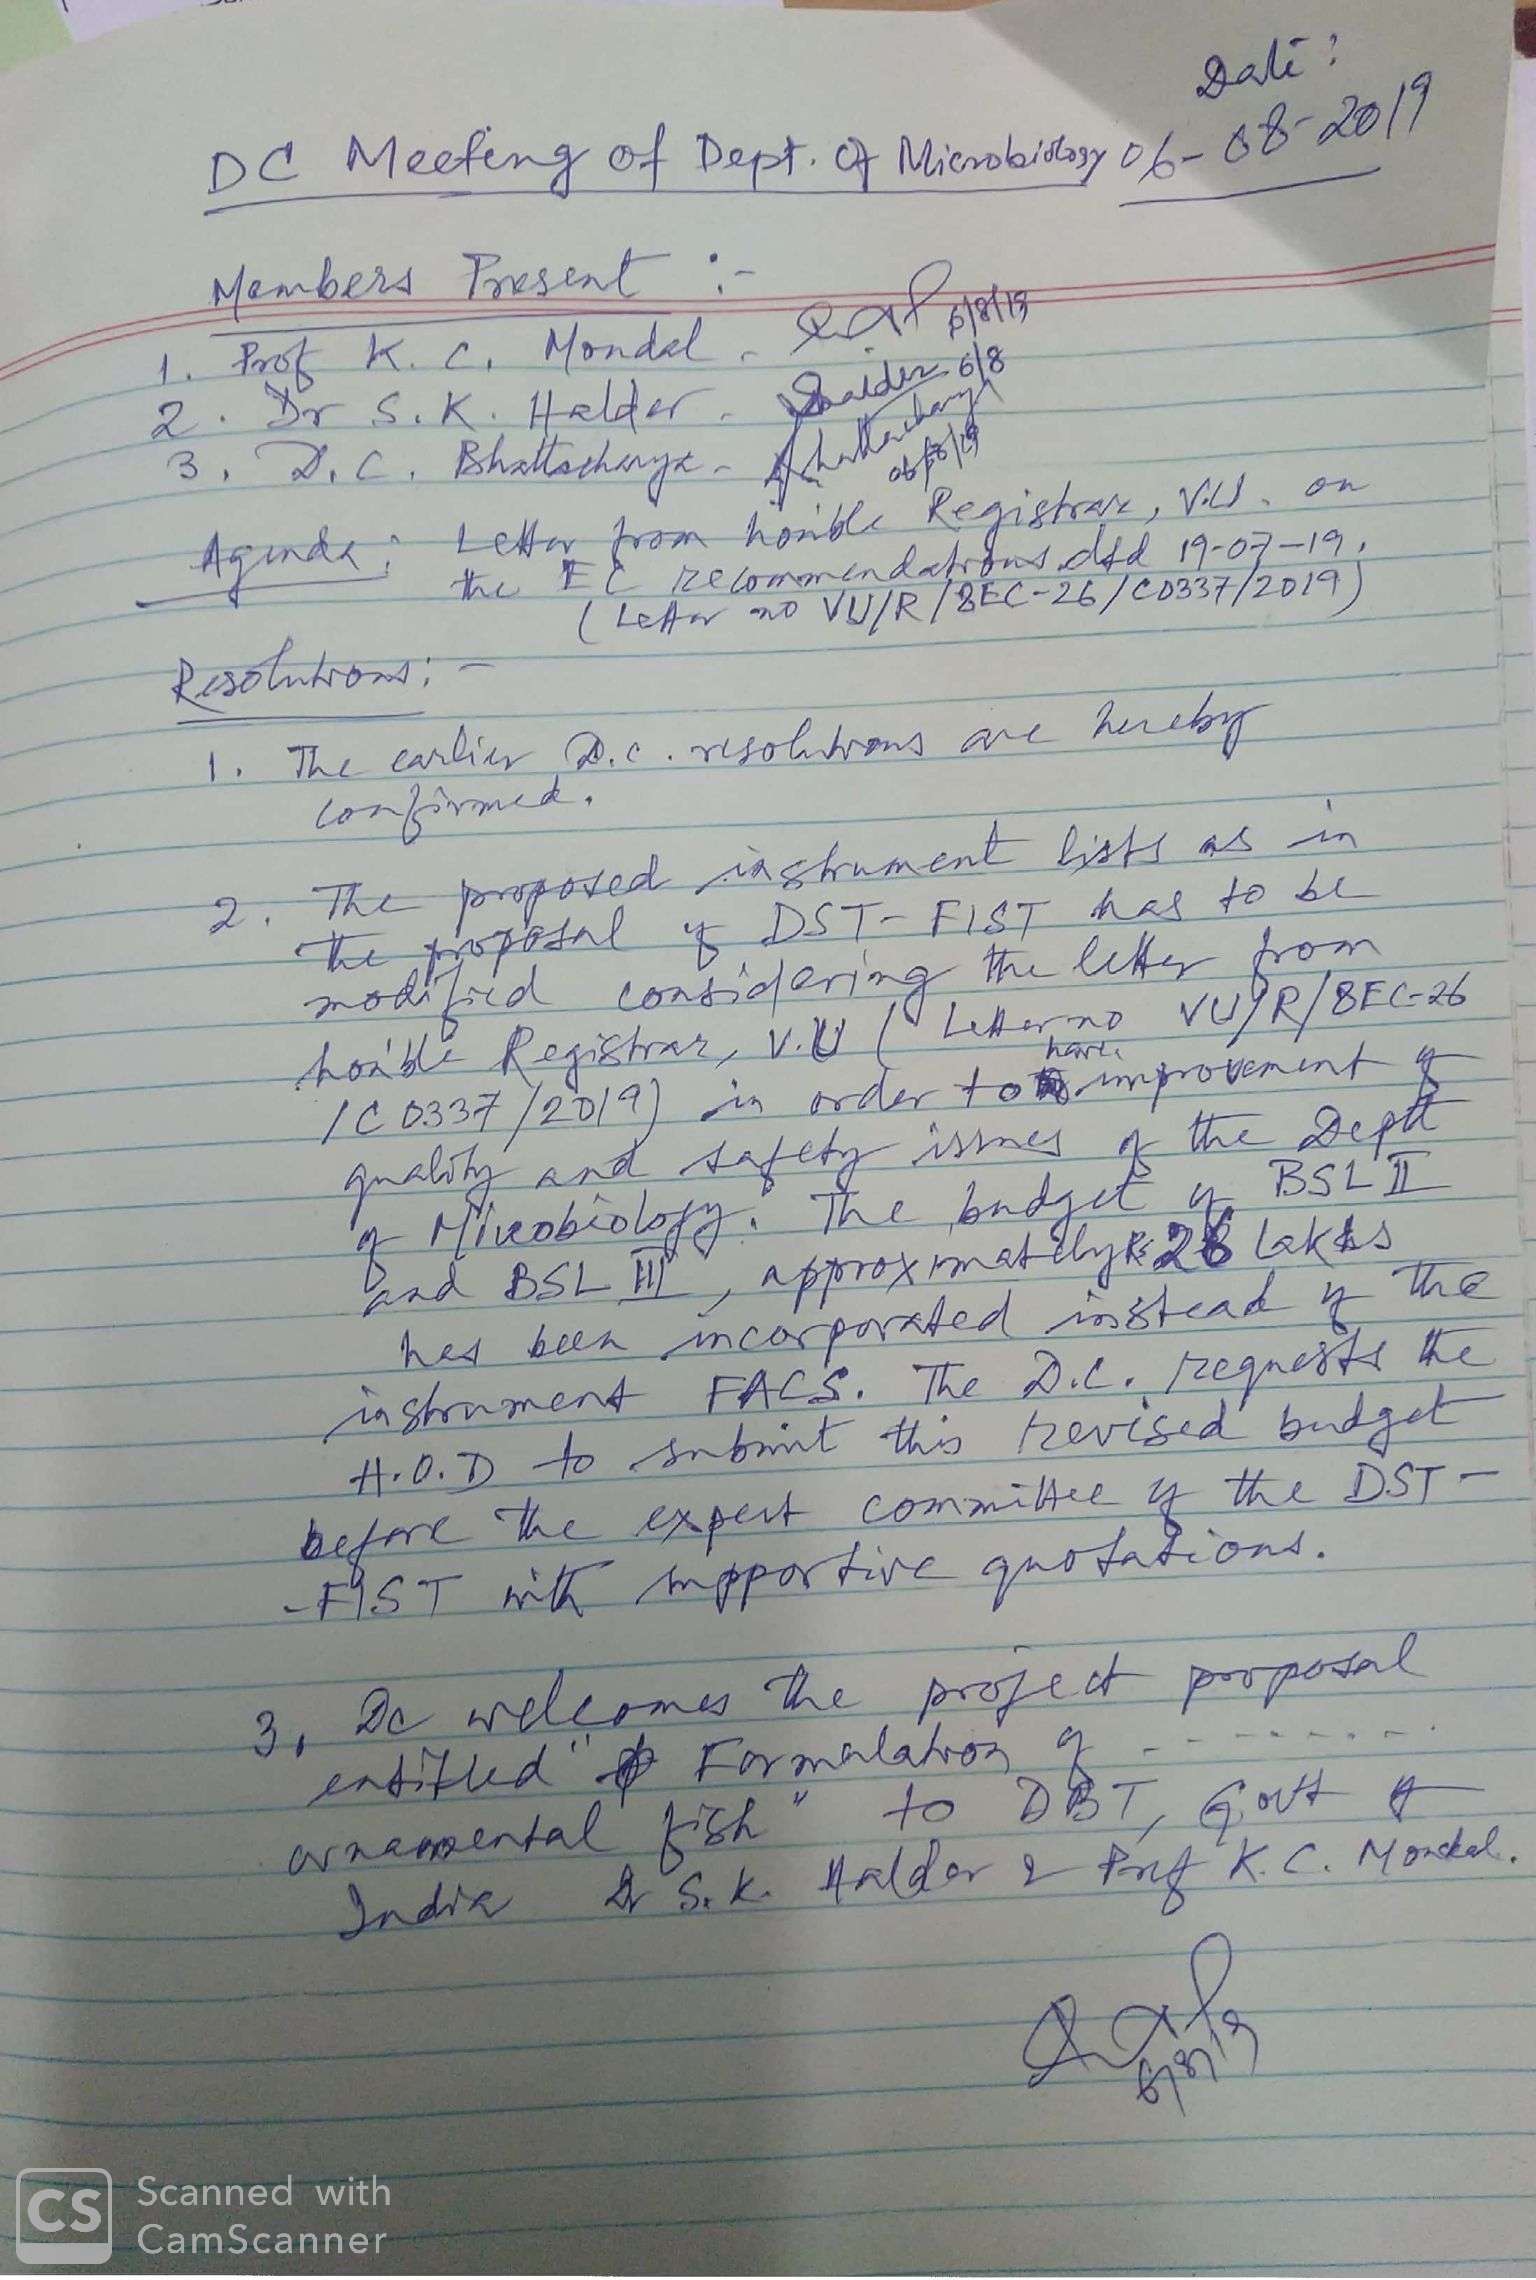 Date:
DC Meeting of Dept. of Microbiology 06-08-2019
Members Present :-
1. Prof K. C. Mondal - 6/8/19
2. Dr S.K. Halder - SHalder 6/8
3. D.C. Bhattacharya - Bhattacharya
06/8/19
Agenda: Letter from hon'ble Registrar, V.U. on
the EC recommendations dtd 19-07-19.
(Letter no VU/R/8EC-26/C0337/2019)
Resolutions: -
1. The earlier D.C. resolutions are hereby
confirmed.
2. The proposed instrument lists as in
the proposal of DST-FIST has to be
modified considering the letter from
hon'ble Registrar, V.U (Letter no VU/R/8EC-26
/C0337/2019) in order to have improvement of
quality and safety issues of the Deptt
of Microbiology. The budget of BSL II
and BSL III, approximately Rs 26 Lakhs
has been incorporated instead of the
instrument FACS. The D.C. requests the
H.O.D to submit this revised budget
before the expert committee of the DST-
-FIST with supportive quotations.
3. Dc welcomes the project proposal
entitled "Formulation of - - - - - - -
ornamental fish" to DBT, Govt of
India Dr S.K. Halder & Prof K.C. Mondal.
6/8/19
CS Scanned with
CamScanner